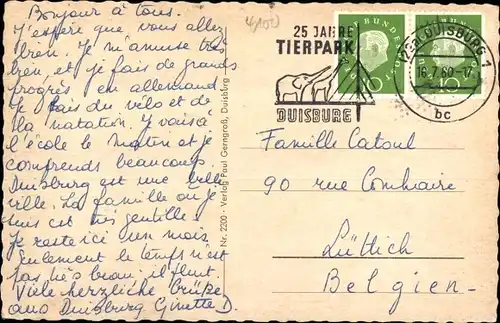 Bonjour à tous.
J'espère que vous allez
bien. Je m'amuse très
bien, et je fais de grands
progrès en allemand.
Je fais du vélo et de
la natation. Je vais à
l'école le matin et je
comprends beaucoup
Duisburg est une belle
ville. La famille où je
suis est très gentille
Je reste ici un mois
Seulement le temps n'est
pas très beau, il pleut.
Viele herzliche Grüße
aus Duisburg Ginette D.
Nr. 2200 · Verlag Paul Gerngroß, Duisburg
4100
25 JAHRE
TIERPARK
DUISBURG
DEUTSCHE BUNDESPOST
10
DUISBURG 1
16.7.60-17
bc
Famille Catoul
90 rue
Lüttich
Belgien